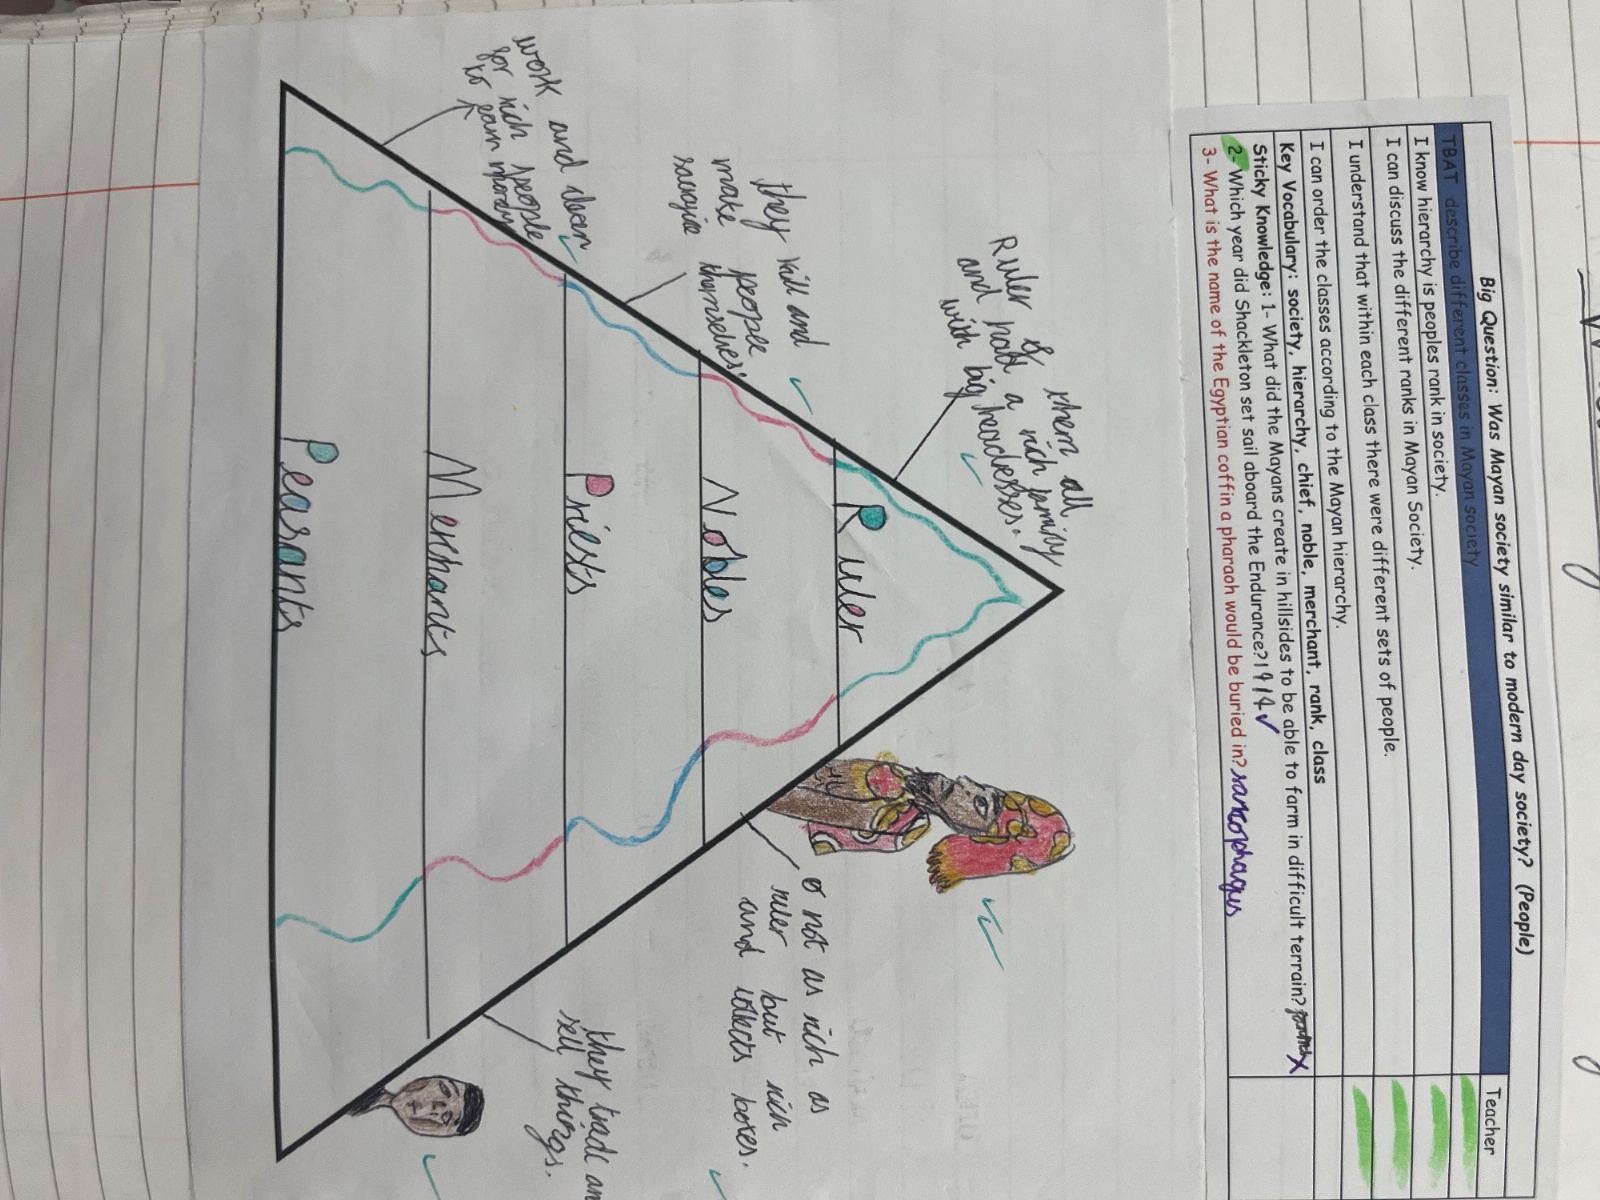 Big Question: Was Mayan society similar to modern day society? (People)
Teacher
TBAT describe different classes in Mayan society
I know hierarchy is peoples rank in society.
I can discuss the different ranks in Mayan Society.
I understand that within each class there were different sets of people.
I can order the classes according to the Mayan hierarchy.
Key Vocabulary: society, hierarchy, chief, noble, merchant, rank, class
Sticky Knowledge: 1- What did the Mayans create in hillsides to be able to farm in difficult terrain?
2- Which year did Shackleton set sail aboard the Endurance? 1914
3- What is the name of the Egyptian coffin a pharaoh would be buried in? sarcophagus
Ruler of them all
and hold a rich
with big headdresses.
they kill and
make people
themselves.
work and clean
for rich people
to earn money
not as rich as
ruler but rich
and collects
they trade an
sell things.
Ruler
Nobles
Priests
Merchants
Peasants